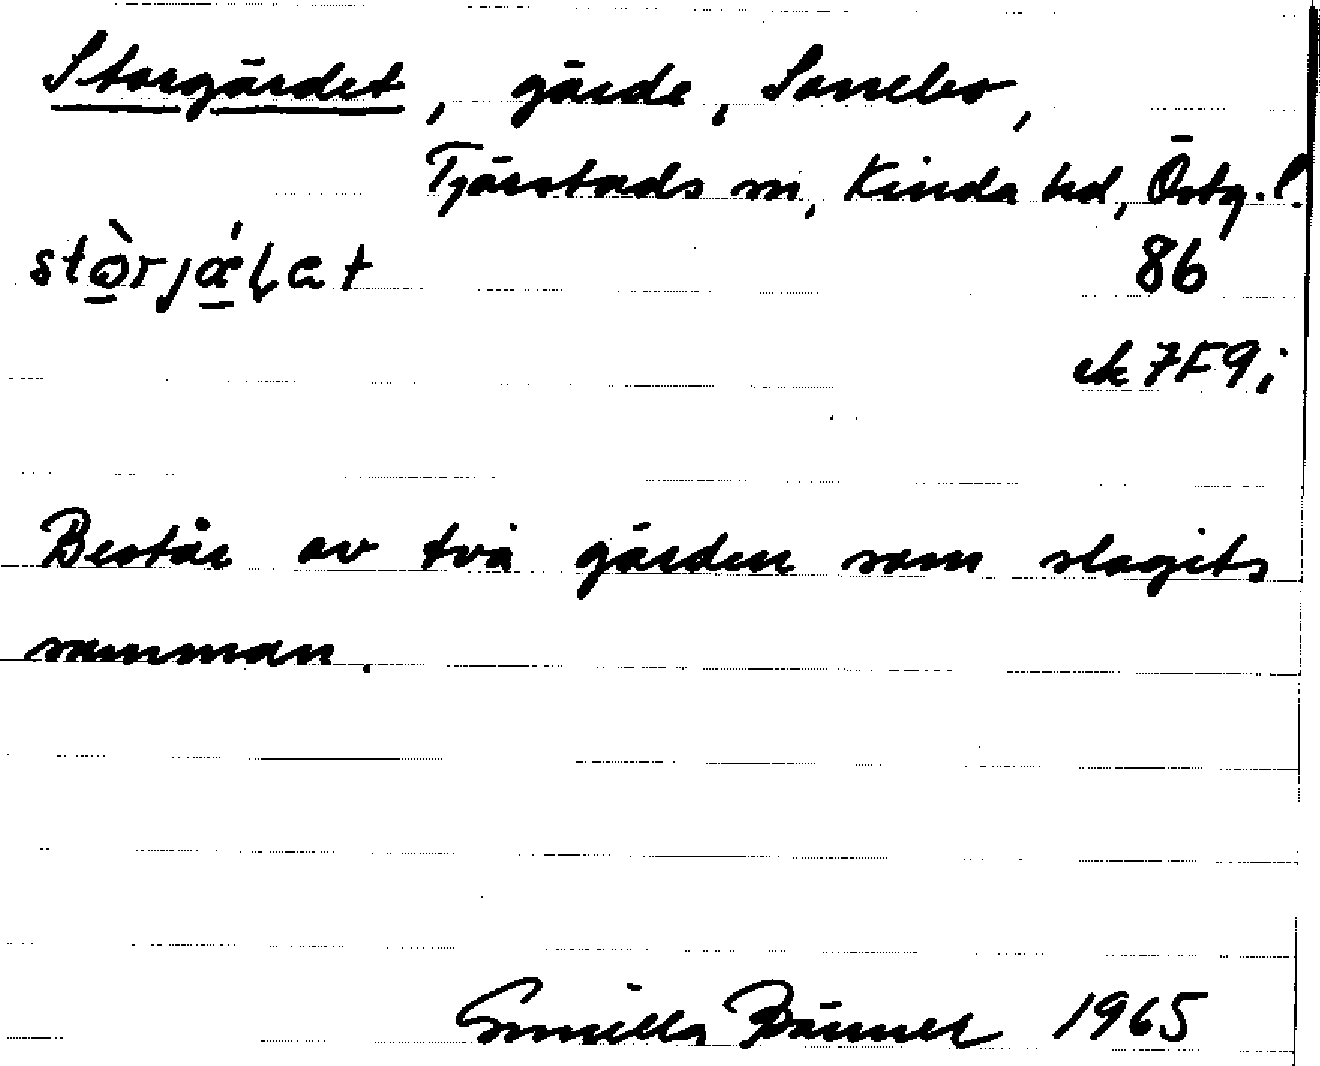 Storgärdet, gärde, Sonebo,
Tjärstads sn, Kinda hd, Östg. l.
stòrjǽɭat 86
ek 7F9i
Består av två gärden som slagits
samman.
Gunilla Bänner 1965